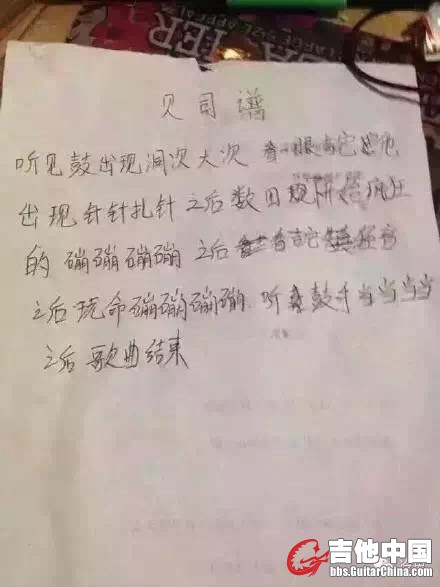 TER
贝司谱
听见鼓出现洞次大次 看一眼吉它
出现针针扎针之后数四 开始疯狂
的蹦蹦蹦蹦之后
之后玩命蹦蹦蹦蹦 听 鼓手当当当当
之后歌曲结束
吉他中国
bbs.GuitarChina.com